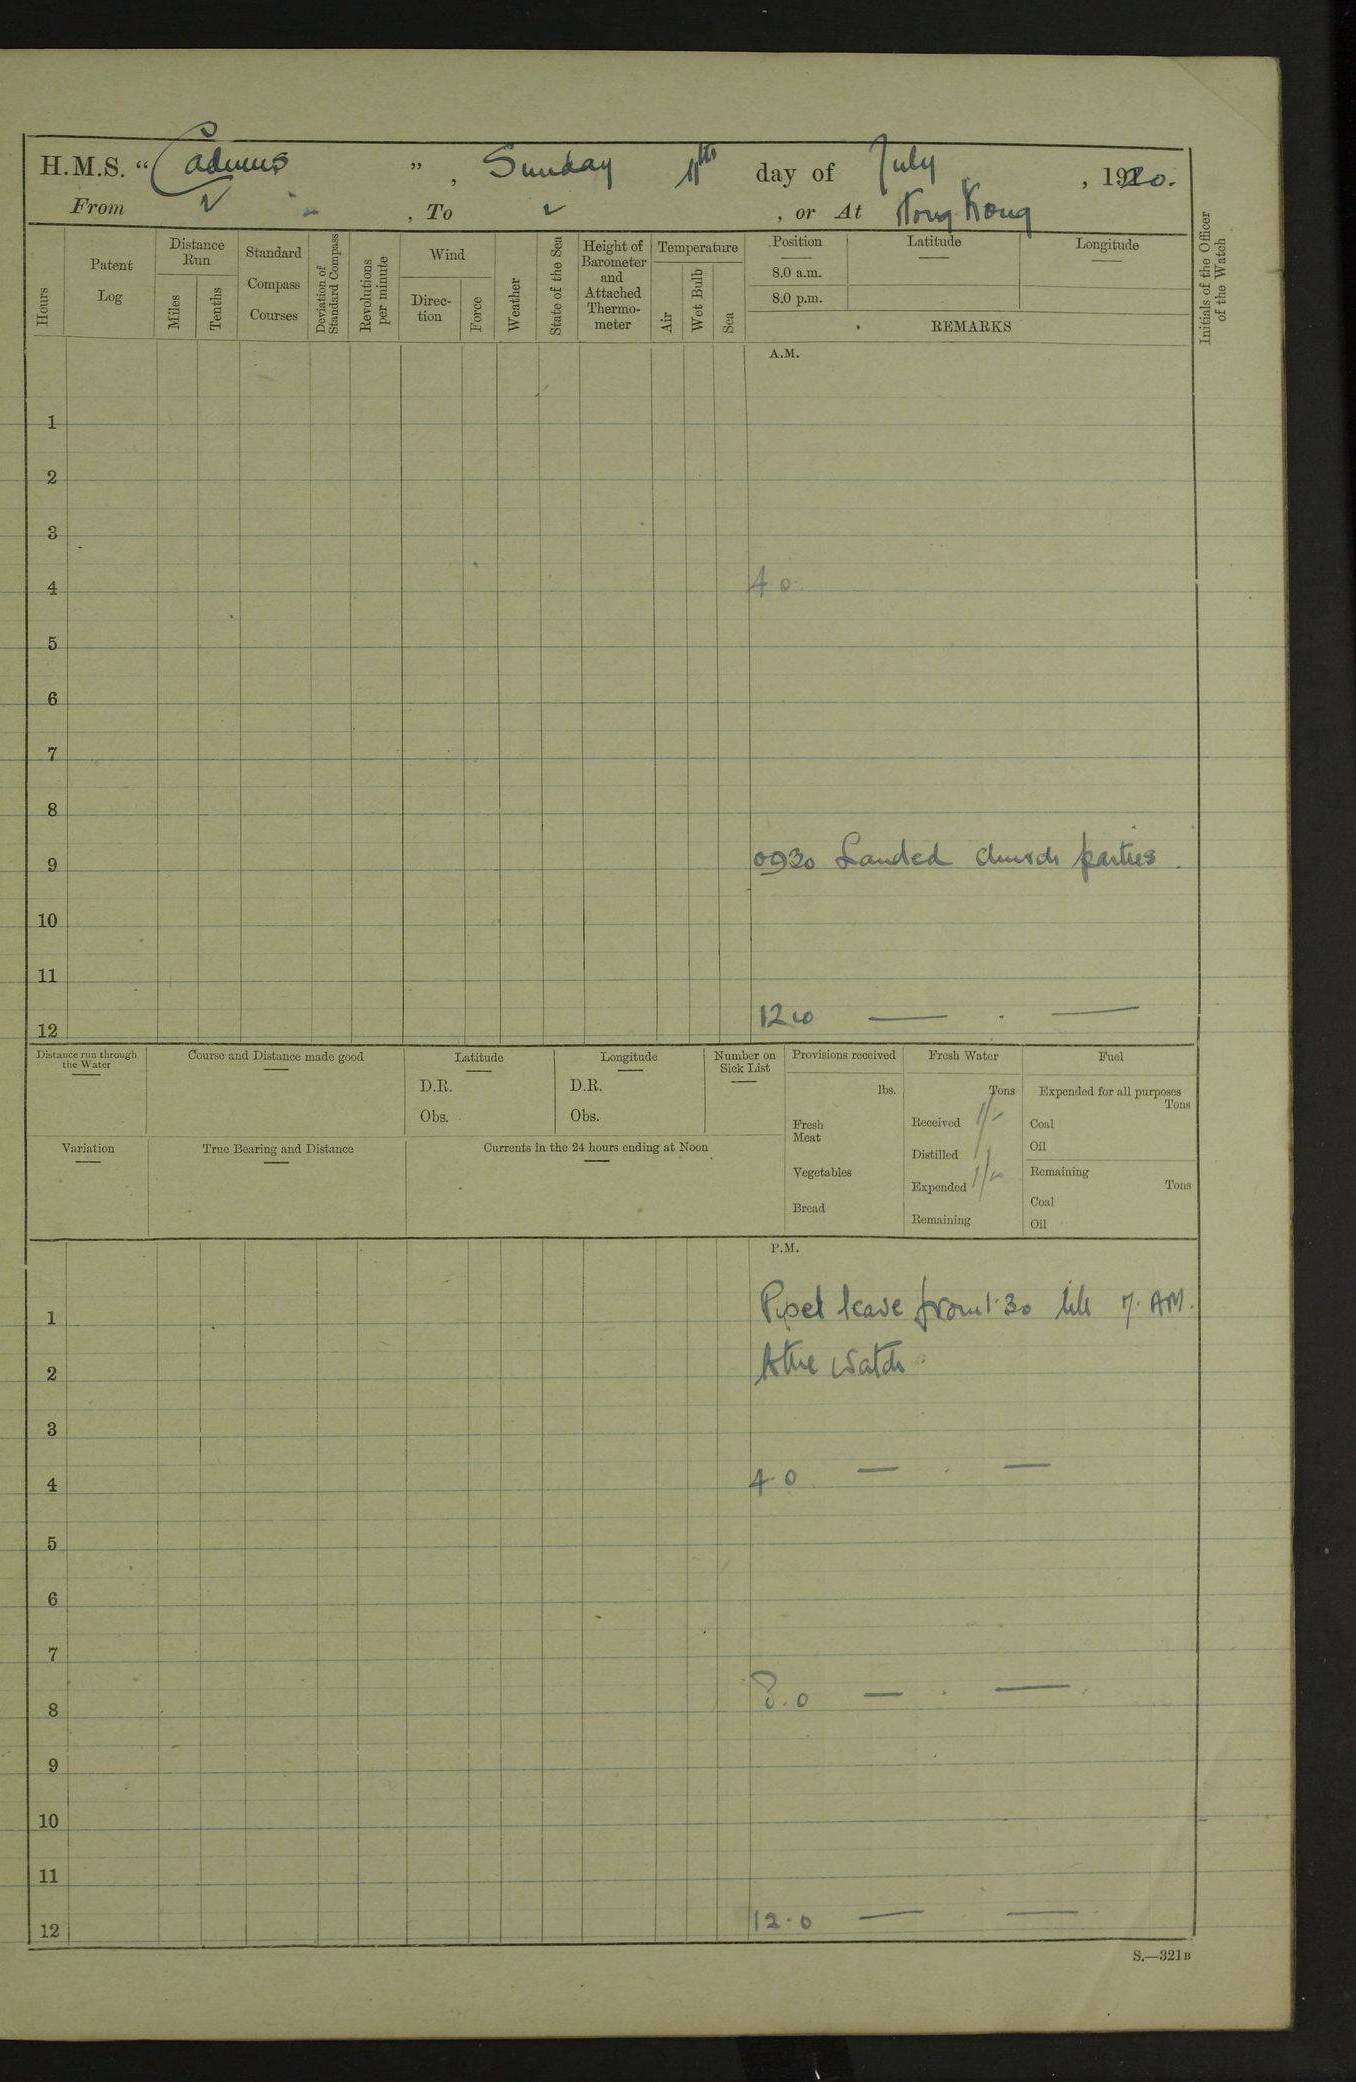 H.M.S. “ Cadmus ” , Sunday 11th day of July , 1920.
From , To , or At Hong Kong
Hours
Patent Log
Distance Run
Miles
Tenths
Standard Compass Courses
Deviation of Standard Compass
Revolutions per minute
Wind
Direc-tion
Force
Weather
State of the Sea
Height of Barometer and Attached Thermo-meter
Temperature
Air
Wet Bulb
Sea
Position
Latitude
Longitude
8.0 a.m.
8.0 p.m.
REMARKS
Initials of the Officer of the Watch
A.M.
1
2
3
4 4 0
5
6
7
8
9 0930 Landed church parties
10
11
12 1200 — . —
Distance run through the Water
Course and Distance made good
Latitude
D.R.
Obs.
Longitude
D.R.
Obs.
Number on Sick List
Provisions received
lbs.
Fresh Meat
Vegetables
Bread
Fresh Water
Tons
Received
Distilled
Expended
Remaining
Fuel
Expended for all purposes
Tons
Coal
Oil
Remaining
Tons
Coal
Oil
Variation
True Bearing and Distance
Currents in the 24 hours ending at Noon
P.M.
1 Piped leave from 1.30 till 7. AM.
2 to the watch
3
4 4.0 — . —
5
6
7
8 8.0 — . —
9
10
11
12 12.0 — —
S.—321B